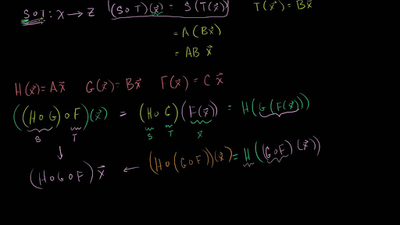 S o T : X → Z (S o T)(x⃗) = S(T(x⃗)) T(x⃗) = Bx⃗
= A(Bx⃗)
= AB x⃗
H(x⃗) = Ax⃗ G(x⃗) = Bx⃗ F(x⃗) = Cx⃗
((H o G) o F)(x⃗) = (H o G)(F(x⃗)) = H(G(F(x⃗)))
S T S T X
(H o G o F) x⃗ ← (H o (G o F))(x⃗) = H((G o F)(x⃗))